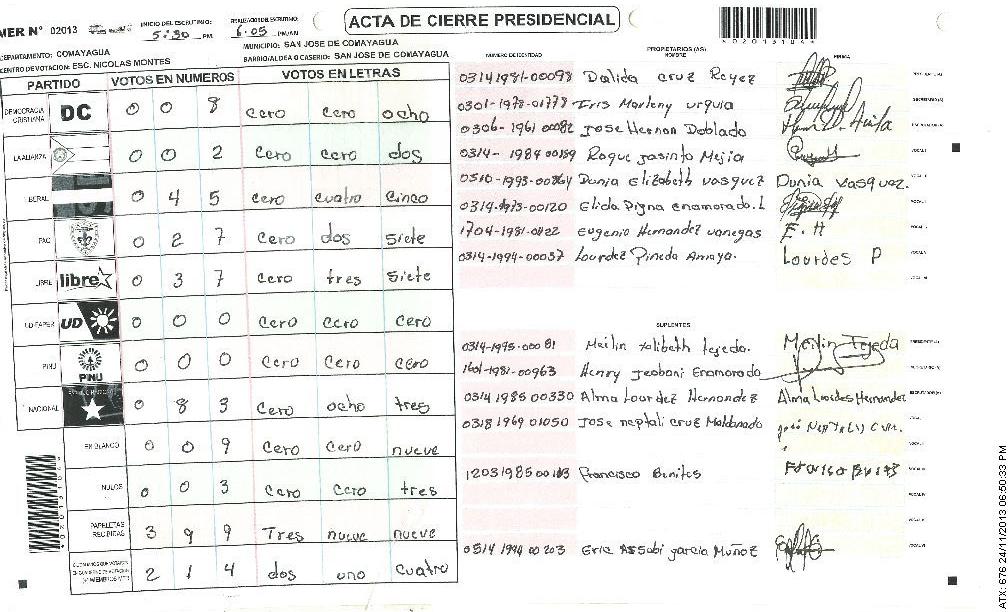 ACTA DE CIERRE PRESIDENCIAL
MER N° 02013
INICIO DEL ESCRUTINIO: 5:30 PM
6:05 PM/AM
DEPARTAMENTO: COMAYAGUA
MUNICIPIO: SAN JOSE DE COMAYAGUA
CENTRO DE VOTACION: ESC. NICOLAS MONTES
BARRIO/ALDEA O CASERIO: SAN JOSE DE COMAYAGUA
PARTIDO VOTOS EN NUMEROS VOTOS EN LETRAS
DEMOCRACIA CRISTIANA DC 0 0 8 cero cero ocho
LA ALIANZA 0 0 2 cero cero dos
BERAL 0 4 5 cero cuatro cinco
PAC 0 2 7 cero dos siete
LIBRE libre 0 3 7 cero tres siete
UD-FAPER UD 0 0 0 cero cero cero
PINU PINU 0 0 0 cero cero cero
NACIONAL 0 8 3 cero ocho tres
EN BLANCO 0 0 9 cero cero nueve
NULOS 0 0 3 cero cero tres
PAPELETAS RECIBIDAS 3 9 9 Tres nueve nueve
2 1 4 dos uno cuatro
NUMERO DE IDENTIDAD PROPIETARIOS (AS) NOMBRE FIRMA
0314 1981-00098 Dalida cruz Reyez
0301-1978-01778 Iris Marleny urquia
0306-1961 00082 Jose Hernon Doblado
0314-1984 00159 Roque Jasinto Mejia
0310-1993-00264 Dunia Elizabeth vasquez Dunia Vasquez.
0314-1973-00120 Elida Digna enamorado.L
1704-1981-0422 Eugenio Hernandez vanegas E.H
0314-1994-00037 Lourdez Pineda Amaya. Lourdes P
SUPLENTES
0314-1995-000 81 Meilin Yolibeth tejeda. Meilin Tejeda
1601-1981-00963 Henry Jeobani Enamorado
0314 1985 00330 Alma Lourdez Hernandez Alma Lourdes Hernandez
0318 1969 01050 Jose neptali cruz Maldonado
1203 1985 00103 Francisco Benites
0514 1994 00203 Eric Assabi garcia Muñoz
4020131044
ATX: 676 24/11/2013 06:50:33 PM